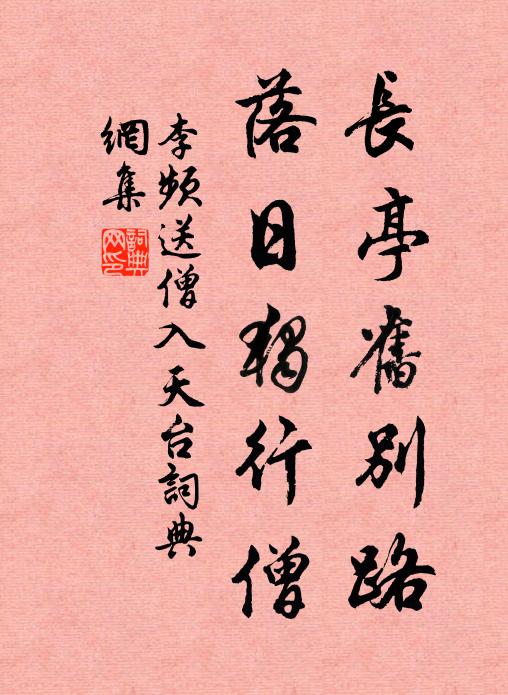 長亭舊別路
落日獨行僧
李頻送僧入天台詞典
網集
詞典
网印